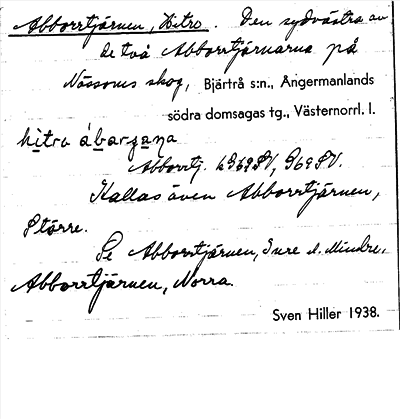 Abborrtjärnen, Hitre. Den sydvästra av
de två Abborrtjärnarna på
Nässoms skog, Bjärtrå s:n., Ångermanlands
södra domsagas tg., Västernorrl. l.
hitra ábarʒana
Abborrtj. GS69SV, G69SV.
Kallas även Abborrtjärnen,
Större.
Se Abborrtjärnen, Inre o. Mindre.
Abborrtjärnen, Norra.
Sven Hiller 1938.